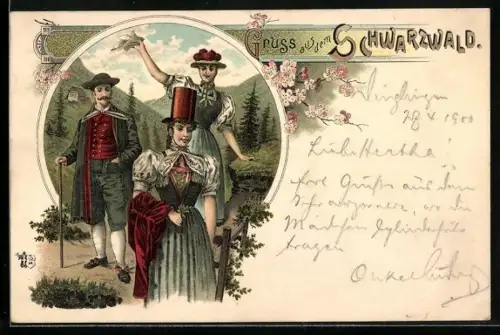 Gruss aus dem Schwarzwald.
28 X 1900
Liebe Hertha!
Grüße aus dem
Schwarzwald, wo die
Mädchen Cylinderhüte
tragen
Onkel